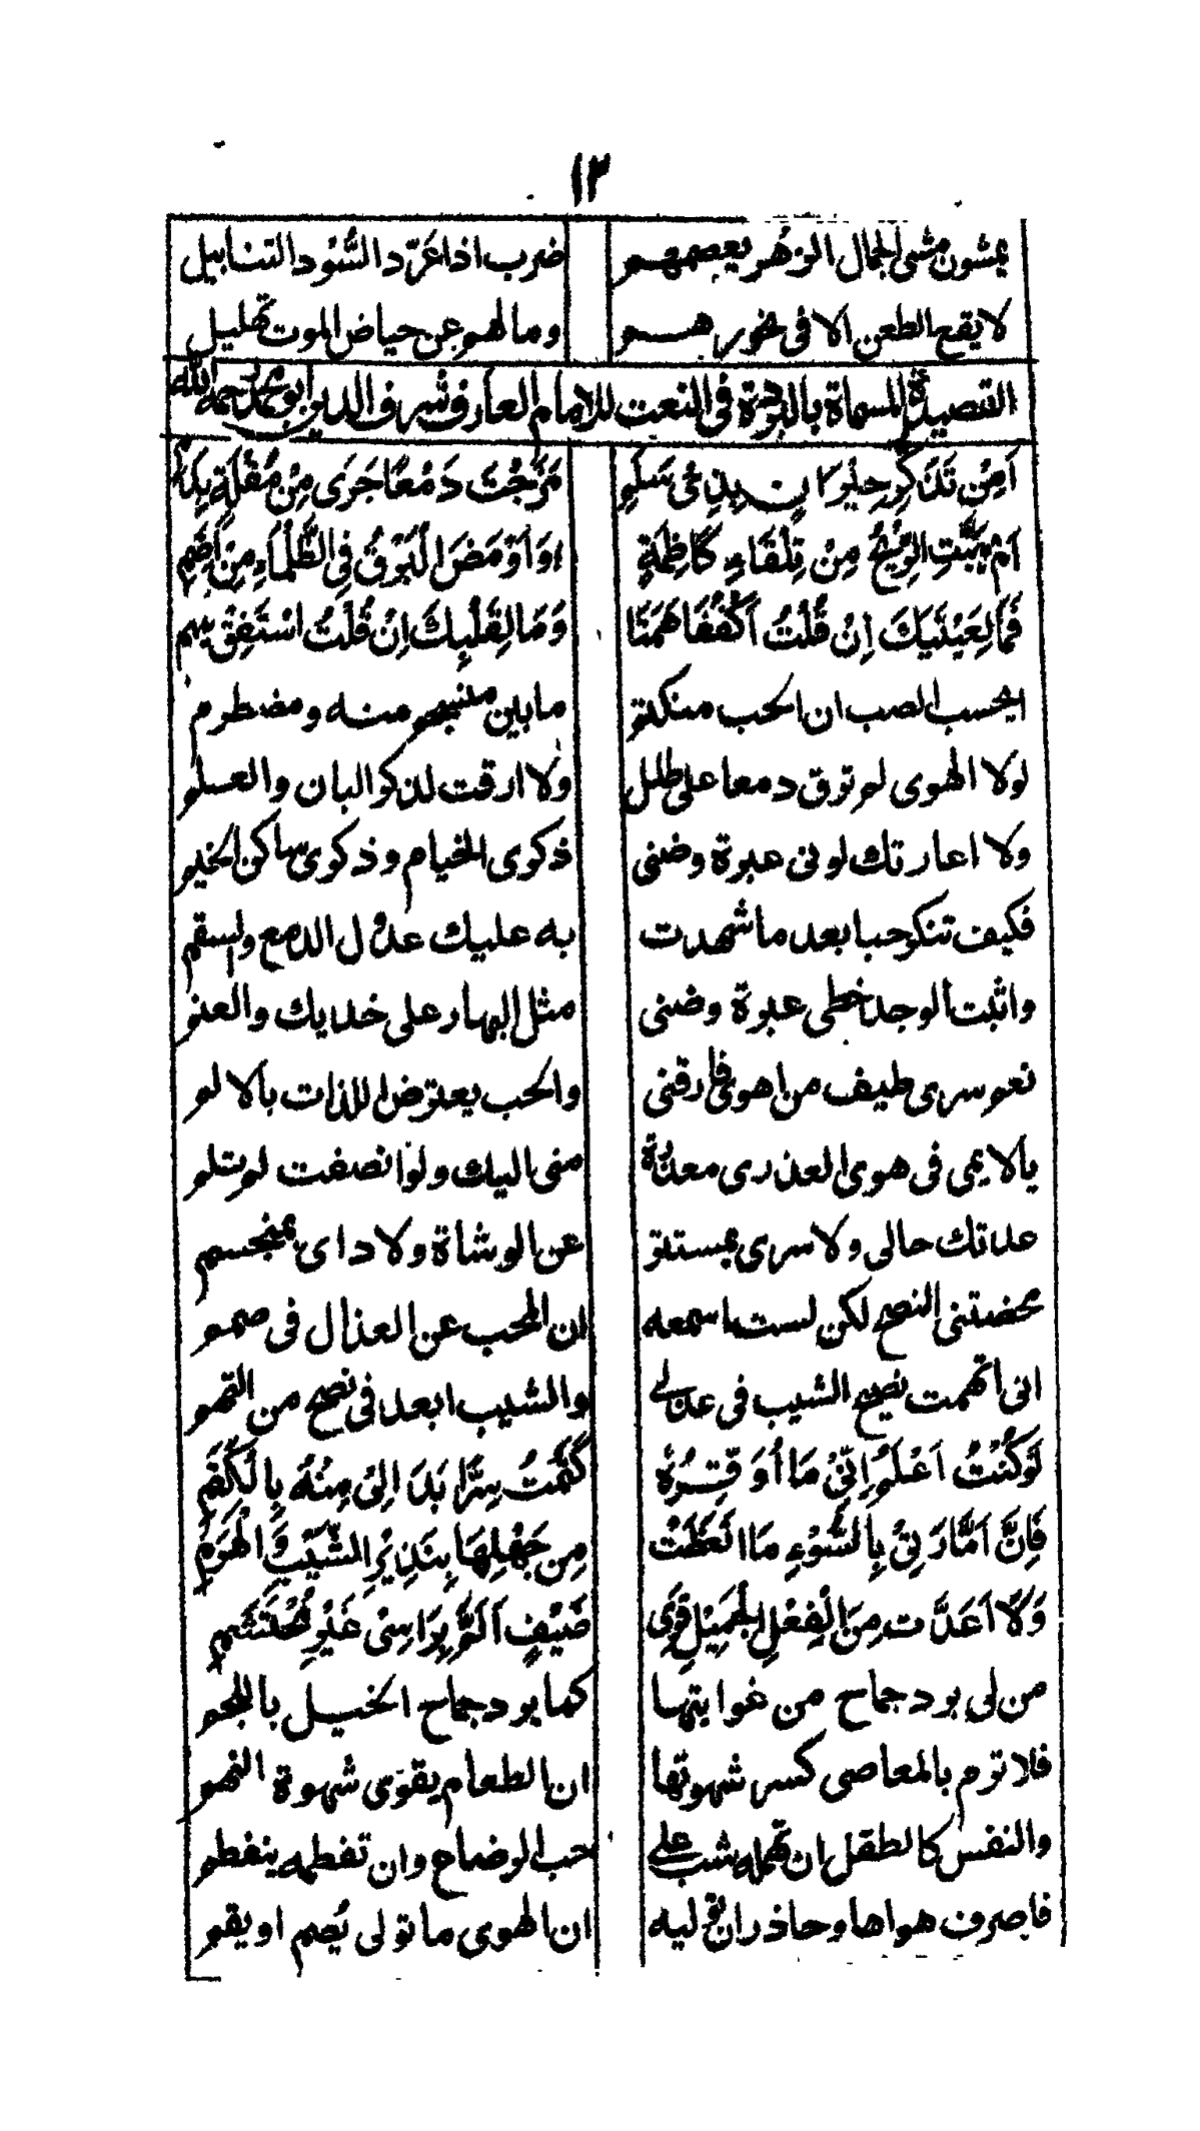 ١٢
يمشون مشى الجمال الزهر يعصمهم ضرب اذا عرّد السّود التنابيل
لا يقع الطعن الا فى نحورهم وما لهم عن حياض الموت تهليل
القصيدة المسماة بالبردة فى النعت للامام العارف شرف الدين ابو محمد رحمه الله
اَمِنْ تَذَكُّرِ جِيْرَانٍ بِذِىْ سَلَمٍ مَزَجْتَ دَمْعًا جَرَى مِنْ مُقْلَةٍ بِدَمٍ
اَمْ هَبَّتِ الرِّيْحُ مِنْ تِلْقَاءِ كَاظِمَةٍ وَاَوْمَضَ الْبَرْقُ فِى الظَّلْمَاءِ مِنْ اِضَمِ
فَمَا لِعَيْنَيْكَ اِنْ قُلْتَ اكْفُفَا هَمَتَا وَمَا لِقَلْبِكَ اِنْ قُلْتَ اسْتَفِقْ يَهِمِ
ايحسب الصب ان الحب منكتم ما بين منسجم منه ومضطرم
لولا الهوى لم ترق دمعا على طلل ولا ارقت لذكر البان والعلم
ولا اعارتك لونى عبرة وضنى ذكرى الخيام وذكرى ساكن الخيم
فكيف تنكر حبا بعد ما شهدت به عليك عدول الدمع والسقم
واثبت الوجد خطى عبرة وضنى مثل البهار على خديك والعنم
نعم سرى طيف من اهوى فارقنى والحب يعترض اللذات بالالم
يا لايمى فى هوى العذرى معذرة منى اليك ولو انصفت لم تلم
عدتك حالى ولا سرى بمستتر عن الوشاة ولا داى بمنحسم
محضتنى النصح لكن لست اسمعه ان المحب عن العذال فى صمم
انى اتهمت نصيح الشيب فى عذلى والشيب ابعد فى نصح من التهم
لَوْ كُنْتُ اَعْلَمُ اِنِّىْ مَا اُوَقِّرُهٗ كَتَمْتُ سِرًّا بَدَا لِىْ مِنْهُ بِالْكَتَمِ
فَاِنَّ اَمَّارَتِىْ بِالسُّوْءِ مَا اتَّعَظَتْ مِنْ جَهْلِهَا بِنَذِيْرِ الشَّيْبِ وَالْهَرَمِ
وَلَا اَعَدَّتْ مِنَ الْفِعْلِ الْجَمِيْلِ قِرٰى ضَيْفٍ اَلَمَّ بِرَاسِىْ غَيْرَ مُحْتَشَمِ
من لى برد جماح من غوايتها كما يرد جماح الخيل باللجم
فلا ترم بالمعاصى كسر شهوتها ان الطعام يقوى شهوة النهم
والنفس كالطفل ان تهمله شب على حب الرضاع وان تفطمه ينفطم
فاصرف هواها وحاذر ان توليه ان الهوى ما تولى يُصم او يقم